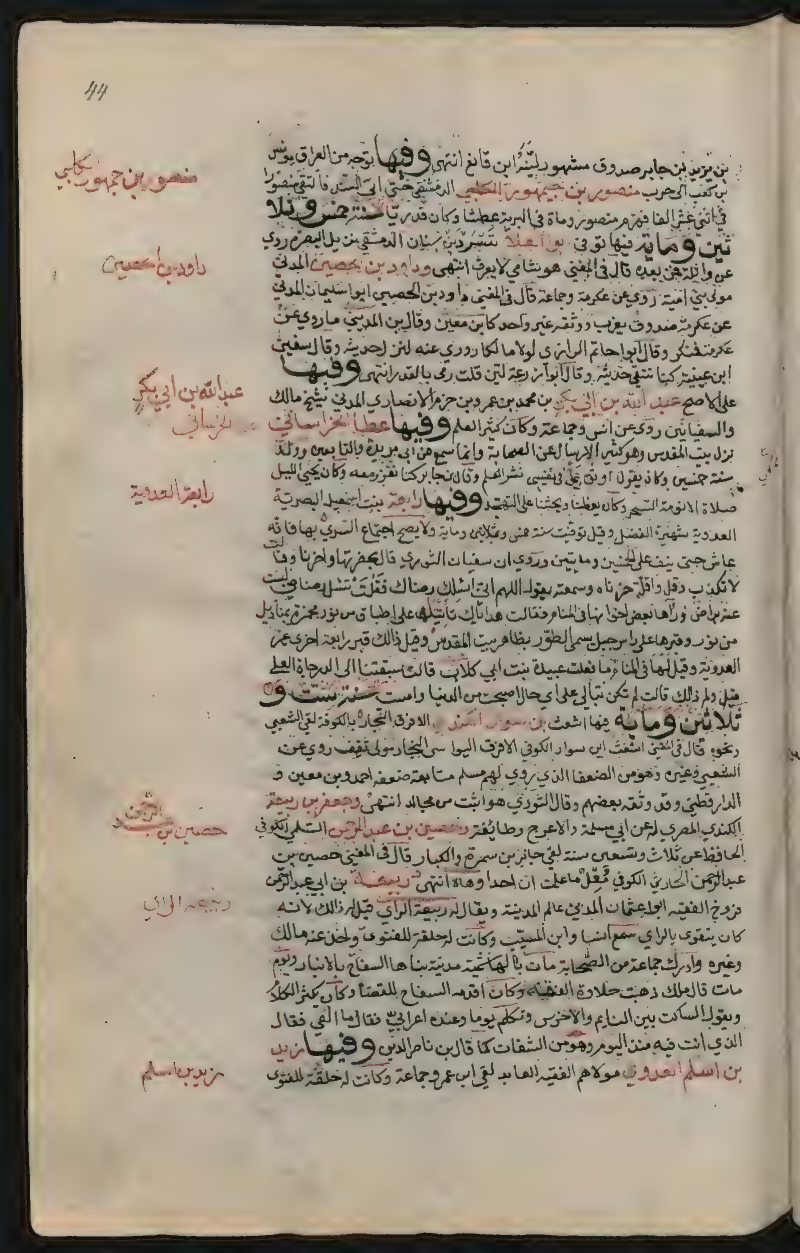 44
بن يزيد بن جابر صدوق مشهور ليّنه ابن قانع انتهى وفيها توجه من العراق يونس
بن كعب الى حرب منصور بن جمهور الكلبي الدمشقي حتى اتى السند فالتقى منصورا
في اثني عشر الفا فهزم منصور ومات في البرية عطشا وكان قدريا سنة خمس وثلا
ثين ومايه فيها توفي ابو العلا برد بن سنان الدمشقي نزيل البصرة روى
عن واثلة فمن بعده قال في المغني هو شامي لا يعرف انتهى وداود بن حصين المدني
مولى بني امية روى عن عكرمة وجماعة قال في المغني داود بن الحصين ابو اسليمان المدني
عن عكرمة صدوق يغرب ووثقه غير واحد كابن معين وقال بن المديني ما روى عن
عكرمة فمنكر وقال ابو حاتم الرازي لولا مالكا روى عنه لترك حديثه وقال سفين
ابن عيينة كنا نتقي حديثه وقال ابو زرعة لين قلت رمى بالقدر انتهى وفيها
على الاصح عبد الله بن ابي بكر بن محمد بن عمرو بن حزم الانصاري المدني شيخ مالك
والسفيانين روى عن انس وجماعة وكان كثير العلم وفيها عطا الخراساني
نزل بيت المقدس وهو كثير الارسال عن الصحابة وانما سمع من ابن بريدة والتابعين وولد
سنة خمسين وكان يقول اوثق عملي في نفسي نشر العلم وقال بن جابر كنا نغزو معه وكان يحيى الليل
صلاة الا نومة السحر وكان يعظنا ويحثنا على التهجد وفيها رابعة بنت اسمعيل البصرية
العدوية شهيرة الفضل وقيل توفيت سنة خمس وثمانين وماية ولا يصح اجتماع السري بها فانه
عاش حتى نيف على الخمسين ومايتين وروى ان سفيان الثوري قال بحضرتها واحزناه وقالت
لا تكذب وقل واقلة حزناه وسمعته يقول اللهم اني اسئلك رضاك فقالت تسئل رضا من لست
عنه براض وراها بعض اخوانها في المنام فقالت هداياك تاتينا على اطباق من نور مخمرة بمناديل
من نور وقبرها على راس جبل يسمى الطور بظاهر بيت المقدس وقيل ذالك قبر رابعة اخرى غير
العدوية وقيل لها في المنام ما فعلت عبيدة بنت ابي كلاب قالت سبقتنا الى الدرجاة العلى
قيل ولم ذالك قالت لم تكن تبالي على اي حال اصبحت من الدنيا وامست سنة ست و
ثلاثين وماية فيها اشعث بن سوار الكندي الافرق النجار بالكوفة لقي الشعبي
ونحوه قال في المغني اشعث ابن سوار الكوفي الافرق التوابيتي النجار مولى ثقيف روى عن
الشعبي وغيره وهو من الضعفا الذي روى لهم مسلم متابعة ضعفه احمد وبن معين و
الدارقطني وقد وثقه بعضهم وقال الثوري هو اثبت من مجالد انتهى وجعفر بن ربيعة
الكندي المصري له عن ابي سلمة والاعرج وطايفة وحصين بن عبد الرحمن السلمي الكوفي
الحافظ عن ثلاث وتسعين سنة لقي جابر بن سمرة والكبار قال في المغني حصين بن
عبد الرحمن الحارثي الكوفي مقل ما علمت ان احدا وهاه انتهى ربيعة بن ابي عبد الرحمن
فروخ الفقيه ابو عثمان المدني عالم المدينة ويقال له ربيعة الراي قيل له ذالك لانه
كان يتقوى بالراي سمع انسا وابن المسيب وكانت له حلقة للفتوى واخذ عنه مالك
وغيره وادرك جماعة من الصحابة مات بالهاشمية مدينة بناها السفاح بالانبار ويوم
مات قال ملك ذهبت حلاوة الفقه وكان اقدمه السفاح للقضا وكان يكثر الكلام
ويقول الساكت بين النايم والاخرس وتكلم يوما وعنده اعرابي فقال ما العي فقال
الذي انت فيه منذ اليوم وهو من الثقات كما قال بن ناصر الدين وفيها زيد
بن اسلم العدوي مولاهم الفقيه العابد لقي ابن عمر وجماعة وكانت له حلقة للفتوى
منصور بن جمهور الكلبي
داود بن الحصين
عبد الله بن ابي بكر
الخرساني
رابعة العدوية
حصين بن عبد الرحمن
ربيعة الراي
زيد بن اسلم